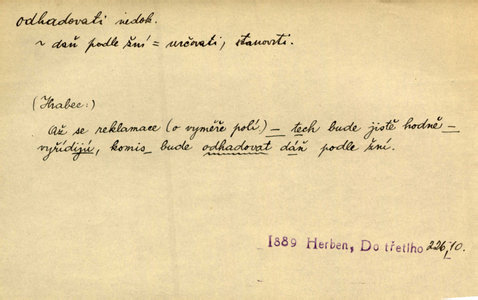 odhadovati nedok.
~ daň podle žní = určovati, stanoviti.
(Hrabec:)
Až se reklamace (o vyměře polí) – tech bude jistě hodně –
vyřídijú, komis bude odhadovat dáň podle žní.
1889 Herben, Do třetího 226,10.